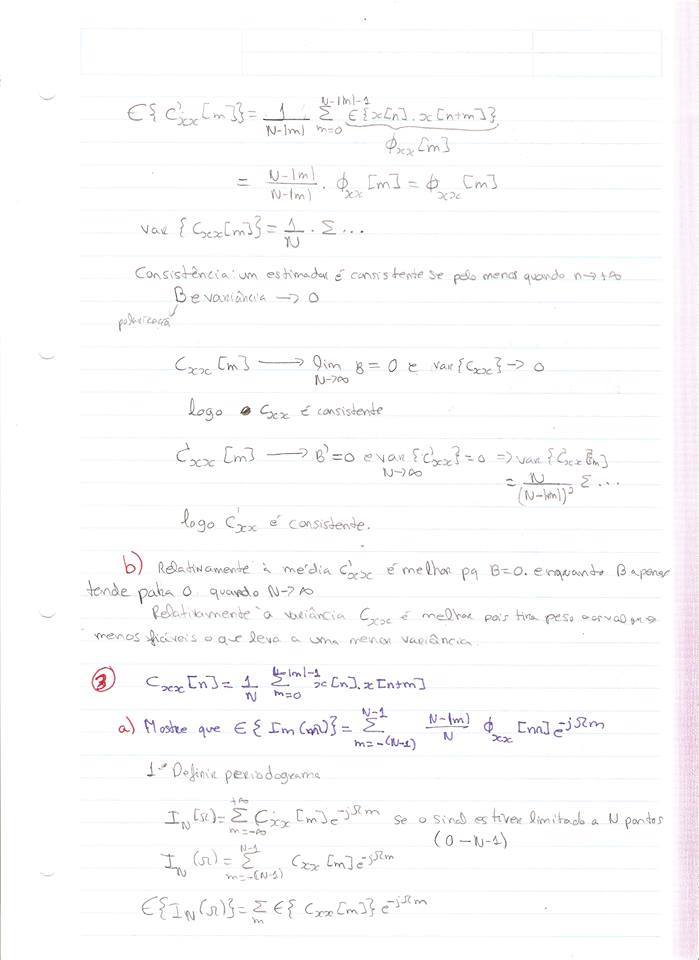 E{C'xx[m]} = 1/(N-|m|) Σ_{m=0}^{N-|m|-1} E{x[n].x[n+m]}
ϕxx[m]
= (N-|m|)/(N-|m|) . ϕxx[m] = ϕxx[m]
var {Cxx[m]} = 1/N . Σ ...
Consistência: um estimador é consistente se pelo menos quando n→+∞
B e variância → 0
Cxx[m] ⟶ lim_{N→∞} B = 0 e var{Cxx} → 0
logo Cxx é consistente
C'xx[m] ⟶ B'=0 e var{C'xx}=0 ⇒ var{C'xx[m]
N→∞
= N/(N-|m|)² Σ ...
logo C'xx é consistente.
b) Relativamente à média C'xx é melhor pq B=0. enquanto B apenas
tende para 0 quando N→∞
Relativamente a variância Cxx é melhor pois tira peso
menos fiáveis o que leva a uma menor variância.
3 Cxx[n] = 1/N Σ_{m=0}^{N-|m|-1} x[n].x[n+m]
a) Mostre que E{Im(Ω)} = Σ_{m=-(N-1)}^{N-1} (N-|m|)/N ϕxx[m] e^{-jΩm}
1º Definir periodograma
I_N[Ω] = Σ_{m=-∞}^{+∞} Cxx[m] e^{-jΩm} se o sinal estiver limitado a N pontos
(0 - N-1)
I_N(Ω) = Σ_{m=-(N-1)}^{N-1} Cxx[m] e^{-jΩm}
E{I_N(Ω)} = Σ_m E{Cxx[m]} e^{-jΩm}